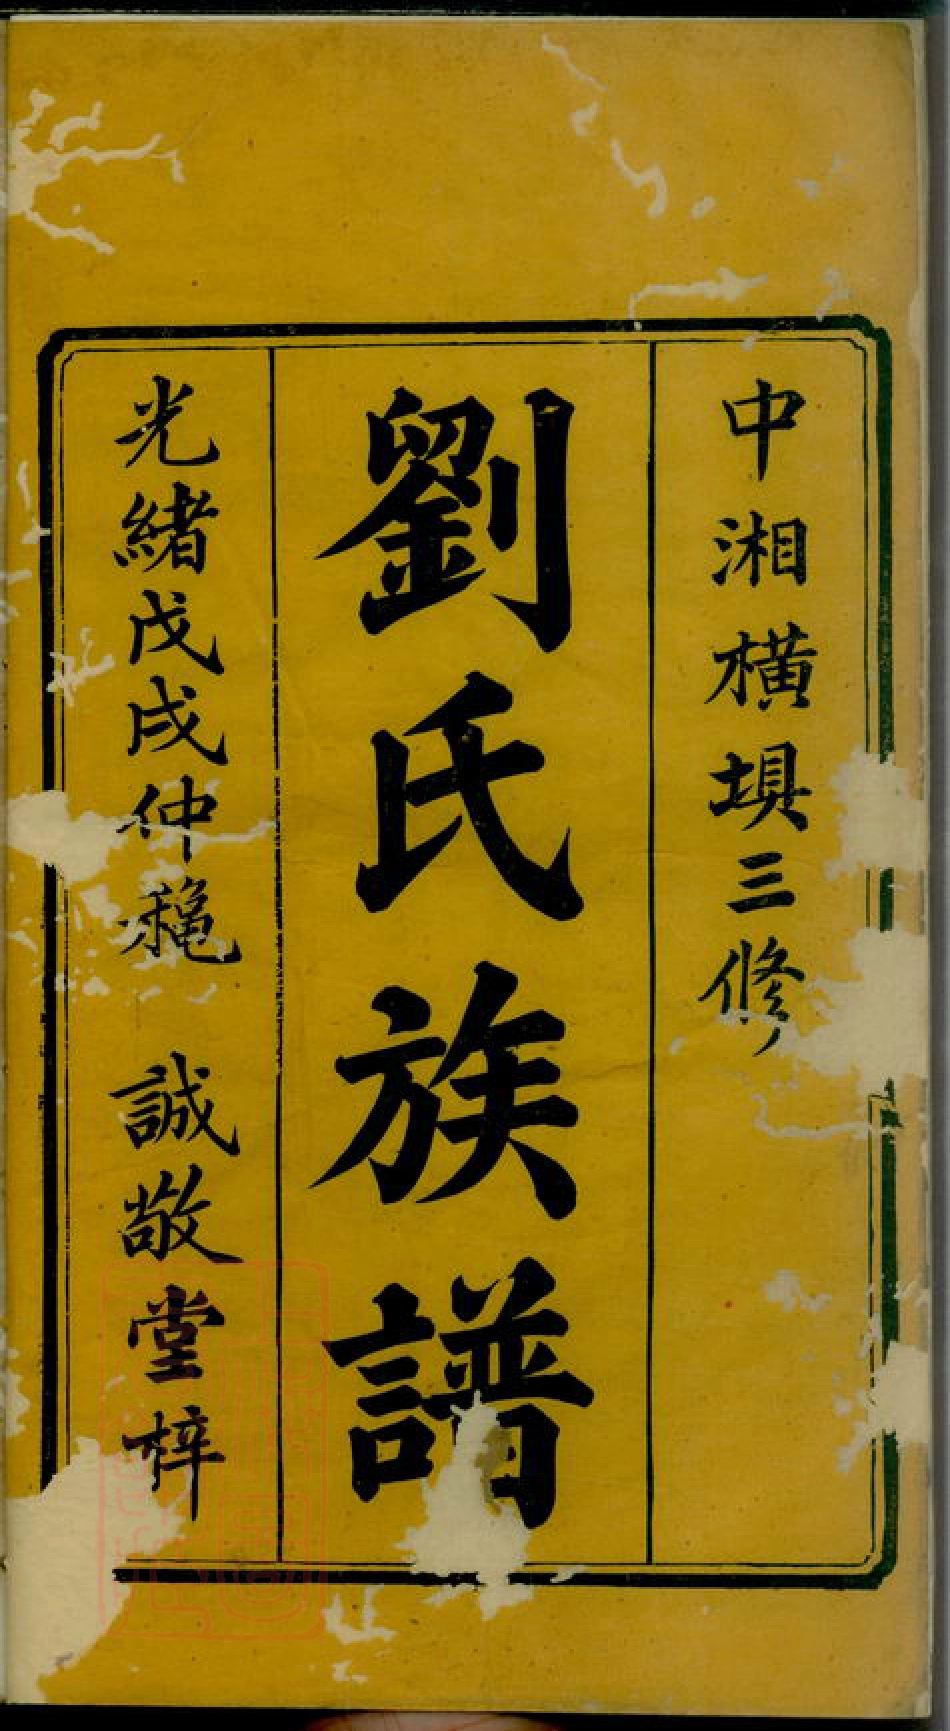 中湘橫塤三修
劉氏族譜
光緒戊戌仲穐 誠敬堂梓